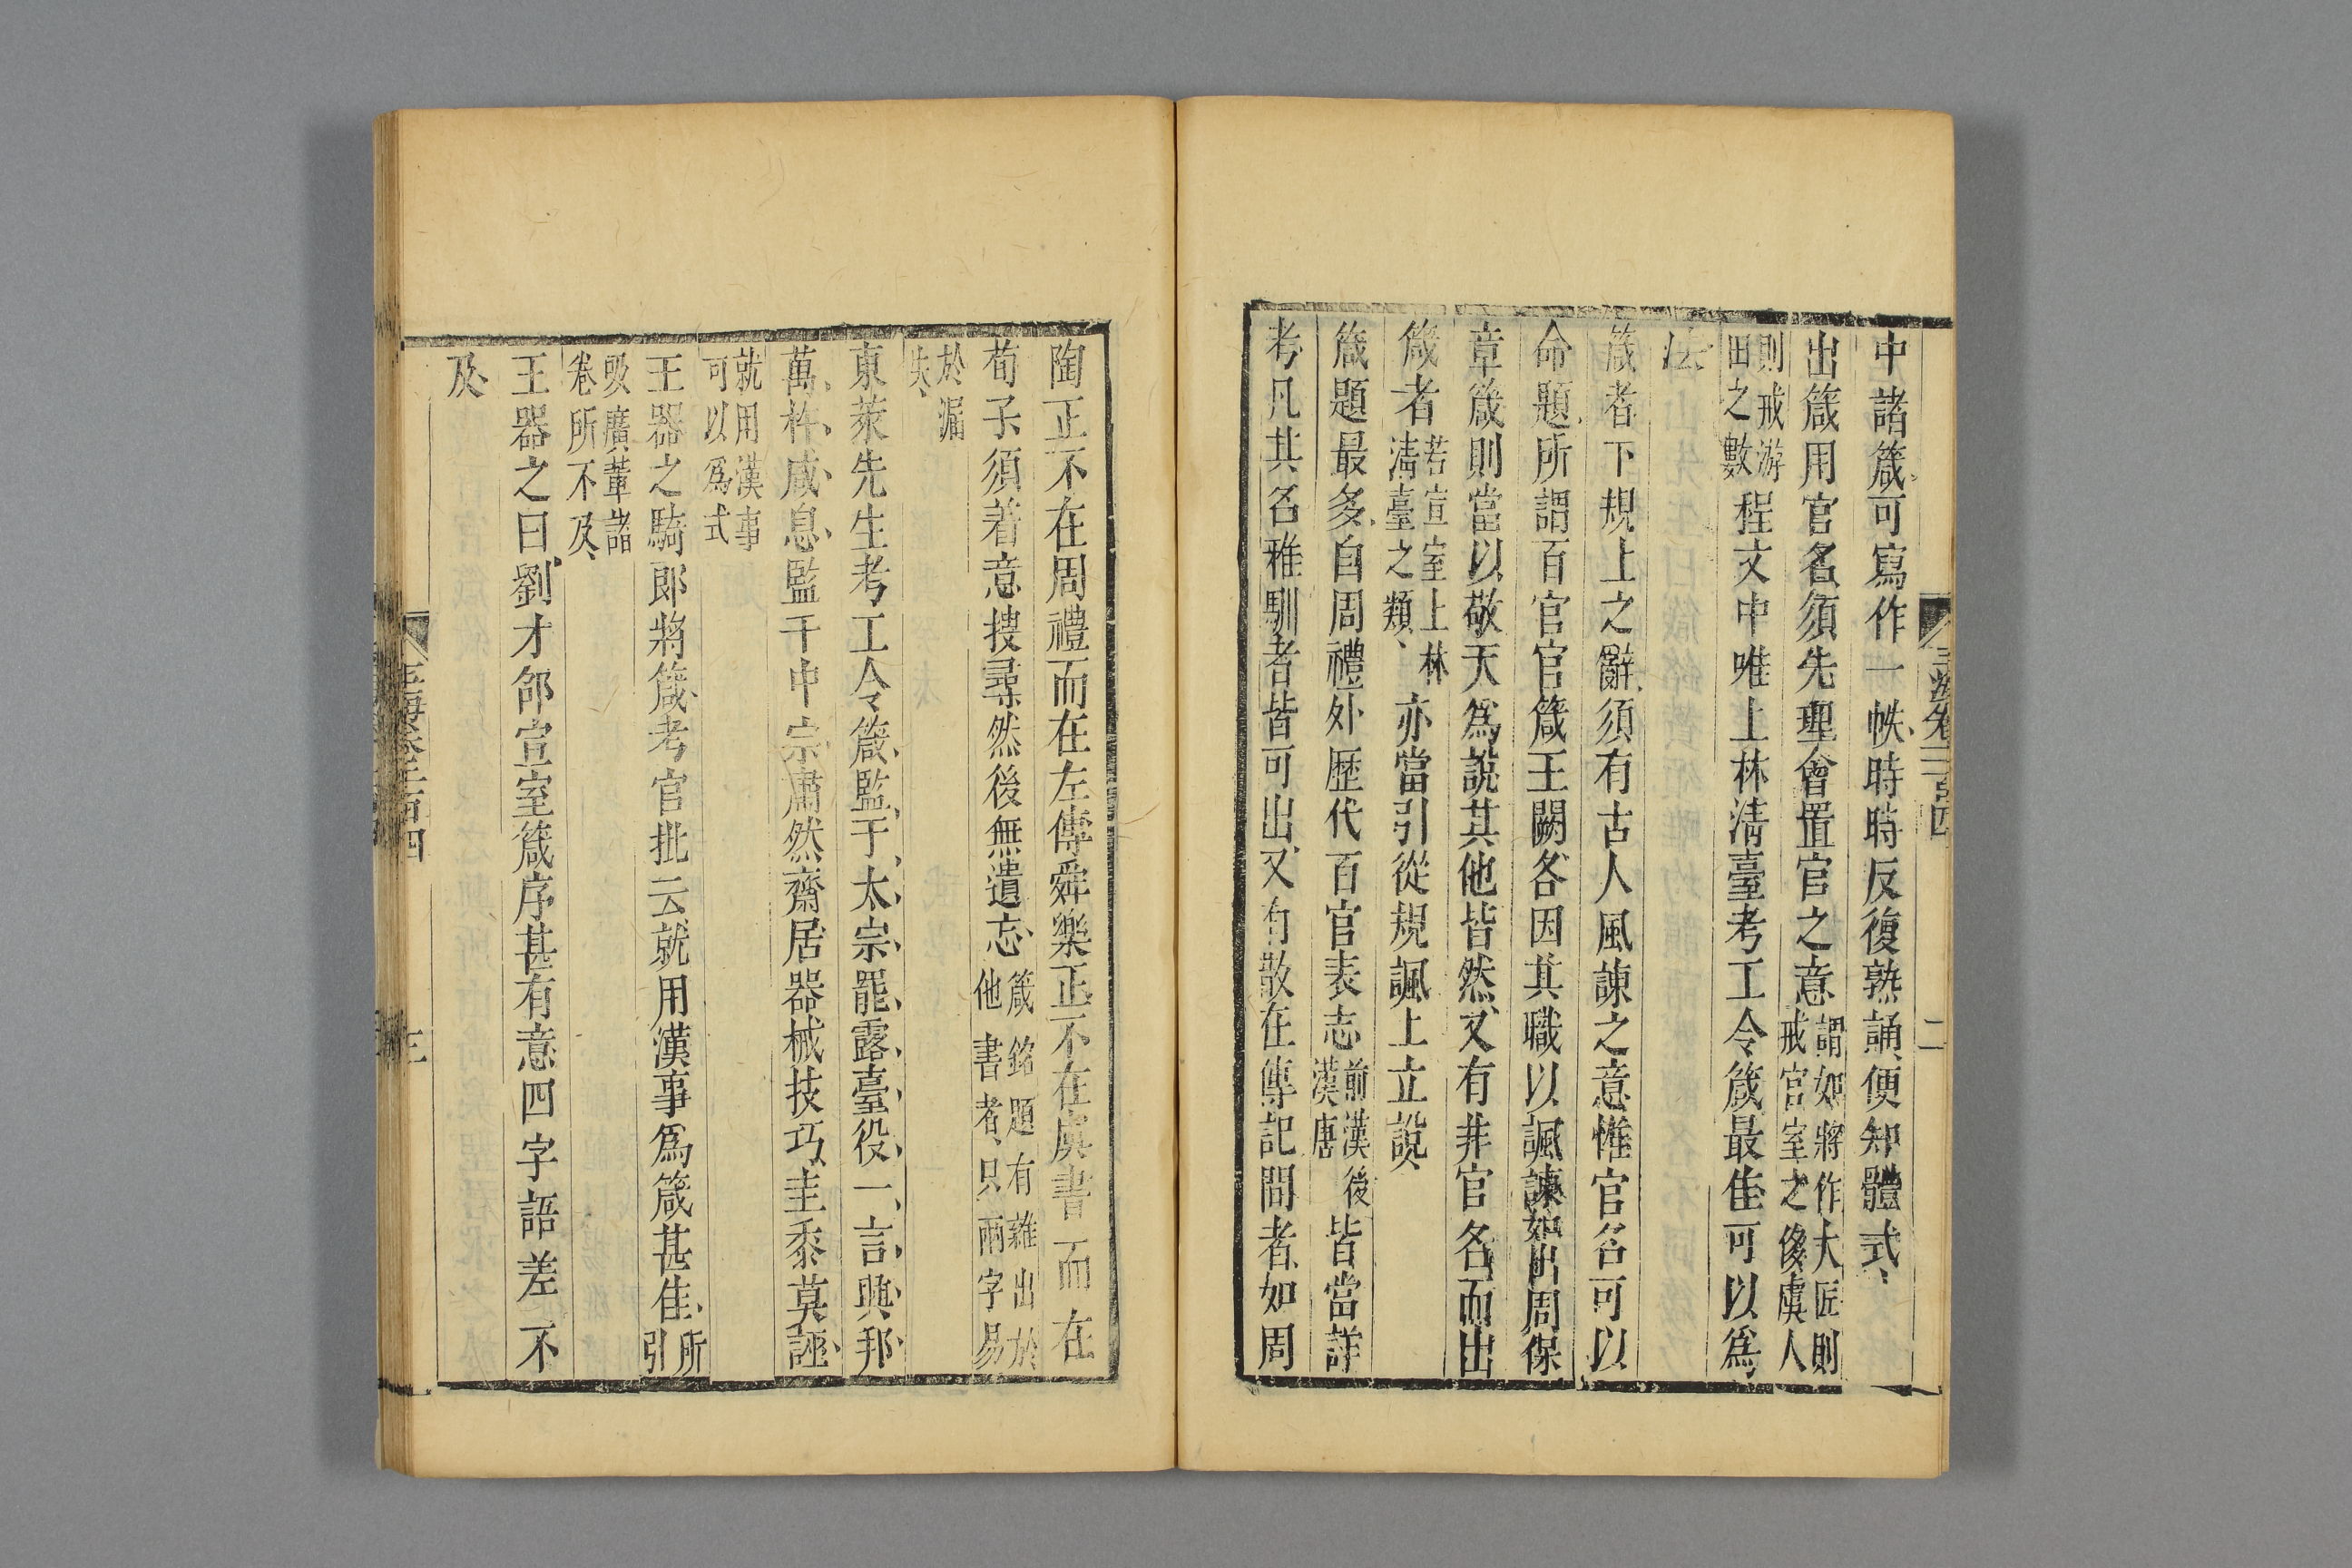 中諸箴可寫作一帙時時反復熟誦便知體式
出箴用官名須先理會置官之意謂如將作大匠則戒官室之侈虞人
則戒游田之數程文中唯上林清臺考工令箴最佳可以為
法
箴者下規上之辭須有古人風諫之意惟官名可以
命題所謂百官官箴王闕各因其職以諷諫如出周保
章箴則當以敬天為說其他皆然又有非官名而出
箴者若宣室上林清臺之類亦當引從規諷上立說
箴題最多自周禮外歷代百官表志前漢後漢唐皆當詳
考凡其名雅馴者皆可出又有散在傳記間者如周
玉海卷二百四
二
陶正不在周禮而在左傳舜樂正不在虞書而在
荀子須着意搜尋然後無遺忘箴銘題有雜出於他書者只兩字易
於漏失
東萊先生考工令箴監于太宗罷露臺役一言興邦
萬杵咸息監于中宗肅然齋居器械技巧圭黍莫誣
就用漢事可以為式
王器之騎郎將箴考官批云就用漢事為箴甚佳所引
吸廣輩諸卷所不及
王器之曰劉才邵宣室箴序甚有意四字語差不
及
玉海卷二百四
三